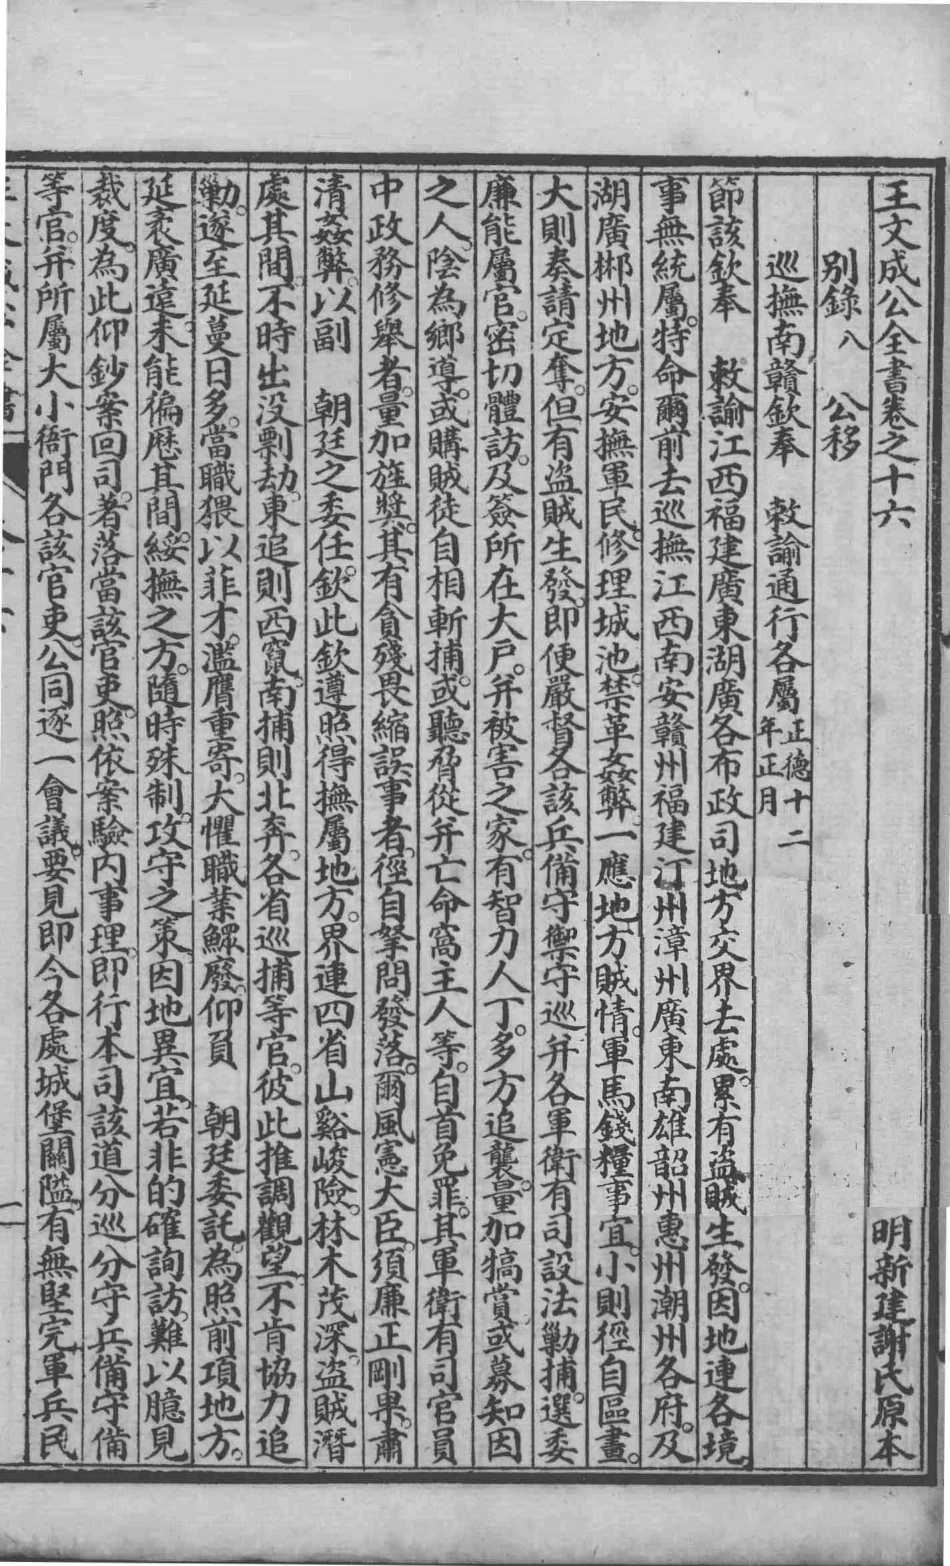 王文成公全書卷之十六　明新建謝氏原本
別錄八　公移
巡撫南贛欽奉　敕諭通行各屬正德十二年正月
節該欽奉　敕諭江西福建廣東湖廣各布政司地方交界去處。累有盜賊生發。因地連各境。
事無統屬。特命爾前去巡撫江西南安贛州福建汀州漳州廣東南雄韶州惠州潮州各府。及
湖廣郴州地方。安撫軍民。修理城池。禁革姦弊。一應地方賊情。軍馬錢糧事宜。小則徑自區畫。
大則奏請定奪。但有盜賊生發。即便嚴督各該兵備守禦守巡并各軍衛有司設法勦捕。選委
廉能屬官。密切體訪。及簽所在大戶。并被害之家。有智力人丁。多方追襲。量加犒賞。或募知因
之人。陰為鄉導。或購賊徒自相斬捕。或聽脅從并亡命窩主人等。自首免罪。其軍衛有司官員
中政務修舉者。量加旌獎。其有貪殘畏縮誤事者。徑自拏問發落。爾風憲大臣。須廉正剛果。肅
清姦弊。以副　朝廷之委任。欽此欽遵照得撫屬地方。界連四省山谿峻險。林木茂深。盜賊潛
處其間。不時出沒剽劫。東追則西竄。南捕則北奔。各省巡捕等官。彼此推調觀望。不肯協力追
勦。遂至延蔓日多。當職猥以菲才。濫膺重寄。大懼職業鰥廢。仰負　朝廷委託。為照前項地方。
延袤廣遠。未能徧歷其間。綏撫之方。隨時殊制。攻守之策。因地異宜。若非的確詢訪。難以臆見
裁度。為此仰鈔案回司。著落當該官吏。照依案驗內事理。即行本司該道分巡分守兵備守備
等官。并所屬大小衙門各該官吏。公同逐一會議。要見即今各處城堡關隘。有無堅完。軍兵民